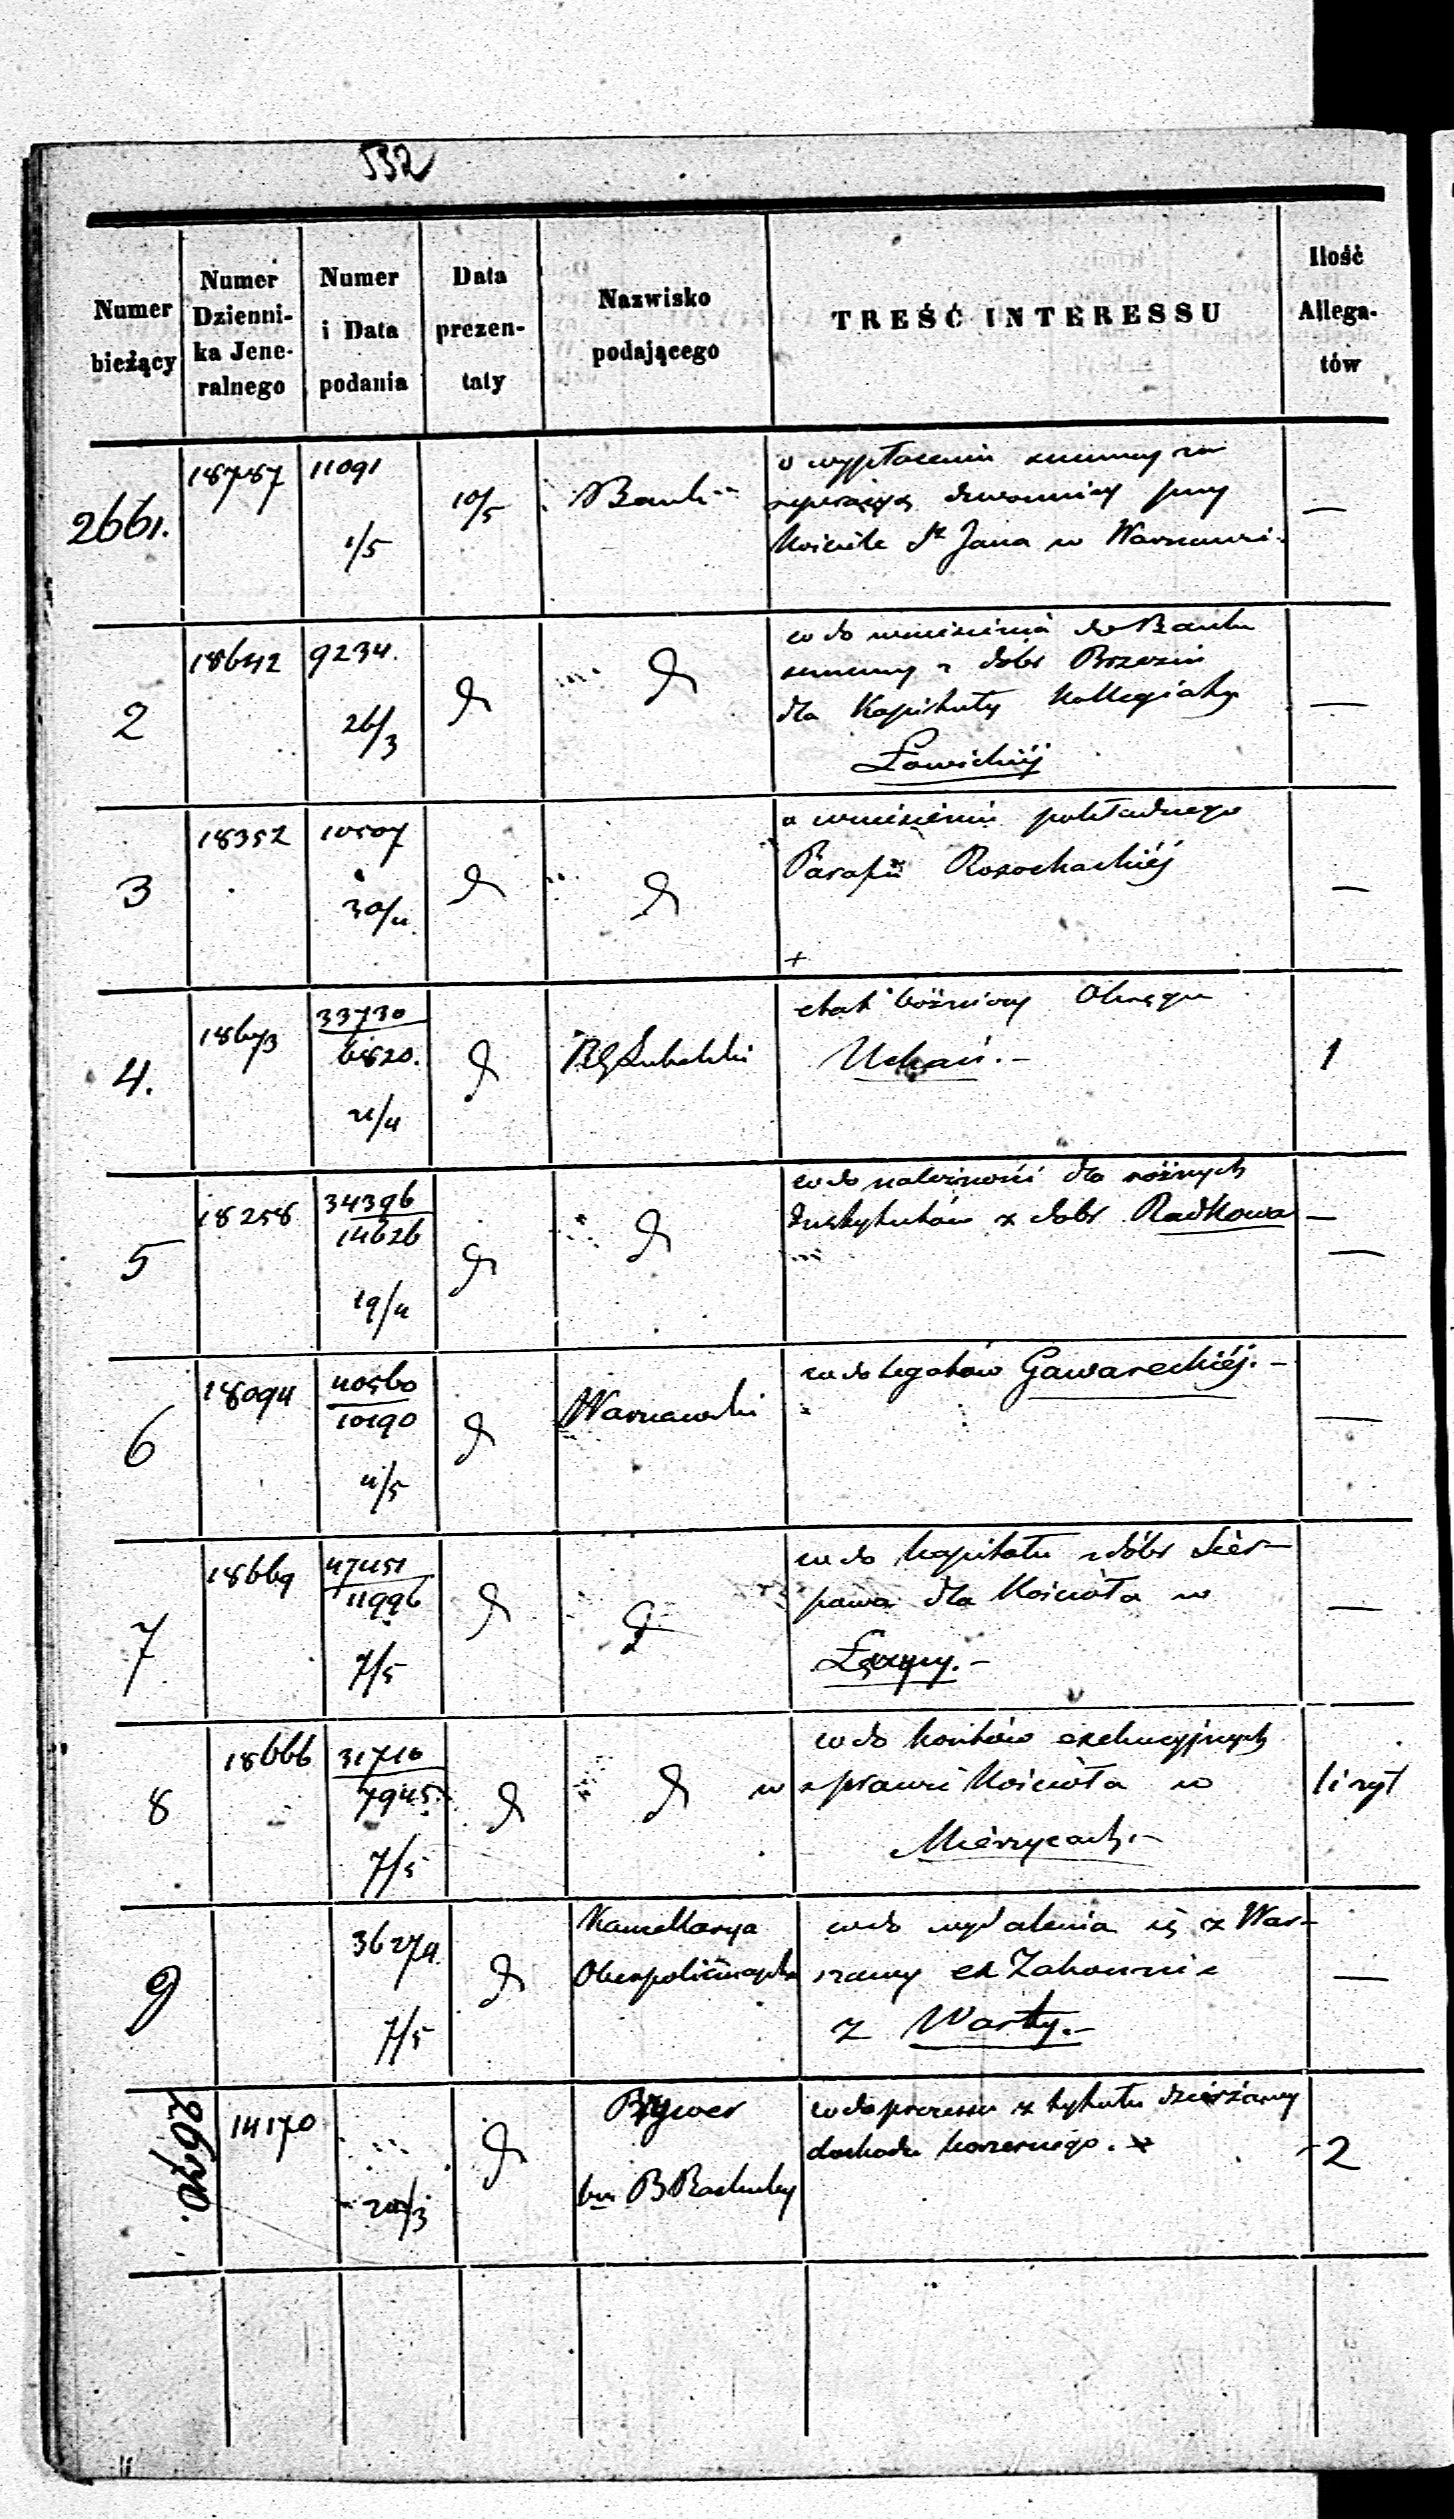 532
Numer bieżący
Numer Dzienni-
ka Jene-
ralnego
Numer
i Data
podania
Data
prezen-
taty
Nazwisko
podającego
TREŚĆ INTERESSU
Ilość
Allega-
tów
2661. 18787 11091 1/5 10/5 Bank
o wypłacenie summy na
reperacyą dzwonnicy przy
Kościele Sgo Jana w Warszawie. —
2 18642 9234. 26/3 d d
wdo wniesienia do Banku
summy z dóbr Brzezin
dla Kapituły Kollegiaty
Łowickiéj —
3 18352 10507 30/4 d d
o wniesieniu pokładnego
Parafii Rosochackiéj —
+
4. 18673 33730/6820. 21/4 d RG Lubelski
etat bóżniczy Okręgu
Uchań.— 1
5 18258 34396/14626 19/4 d d
wdo należności dla różnych
Instytutów z dóbr Radkowa —
6 18094 40560/10190 4/5 d Warszawski
wdo legatów Gawareckiéj.— —
7 18669 47451/11996 7/5 d d
wdo kapitału z dóbr Sier-
pawa dla Kościoła w
Łęczycy.— —
8 18666 31710/7945. 7/5 d d
wdo kosztów exekucyjnych
w sprawie Kościoła w
Mierzycach.— 1 i zył
9 36274. 7/5 d Kancellarya
Oberpolicmajstra
wdo wydalenia się z War-
szawy ex Zakonnika
z Warty.— —
2670. 14170 20/3 d
Brywer
bez B Rachuby
wdo processu z tytułu dzierżawy
dochodu koszernego. 2